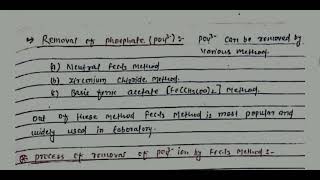 → Removal of phosphate (po₄³⁻) :- po₄³⁻ can be removed by
various method.
(a) Neutral FeCl₃ Method
(b) Zirconium chloride Method.
(c) Basic ferric acetate [Fe(CH₃COO)₂] Method.
Out of these method FeCl₃ Method is most popular and
widely used in laboratory.
Q: process of removal of po₄³⁻ ion by FeCl₃ Method :-